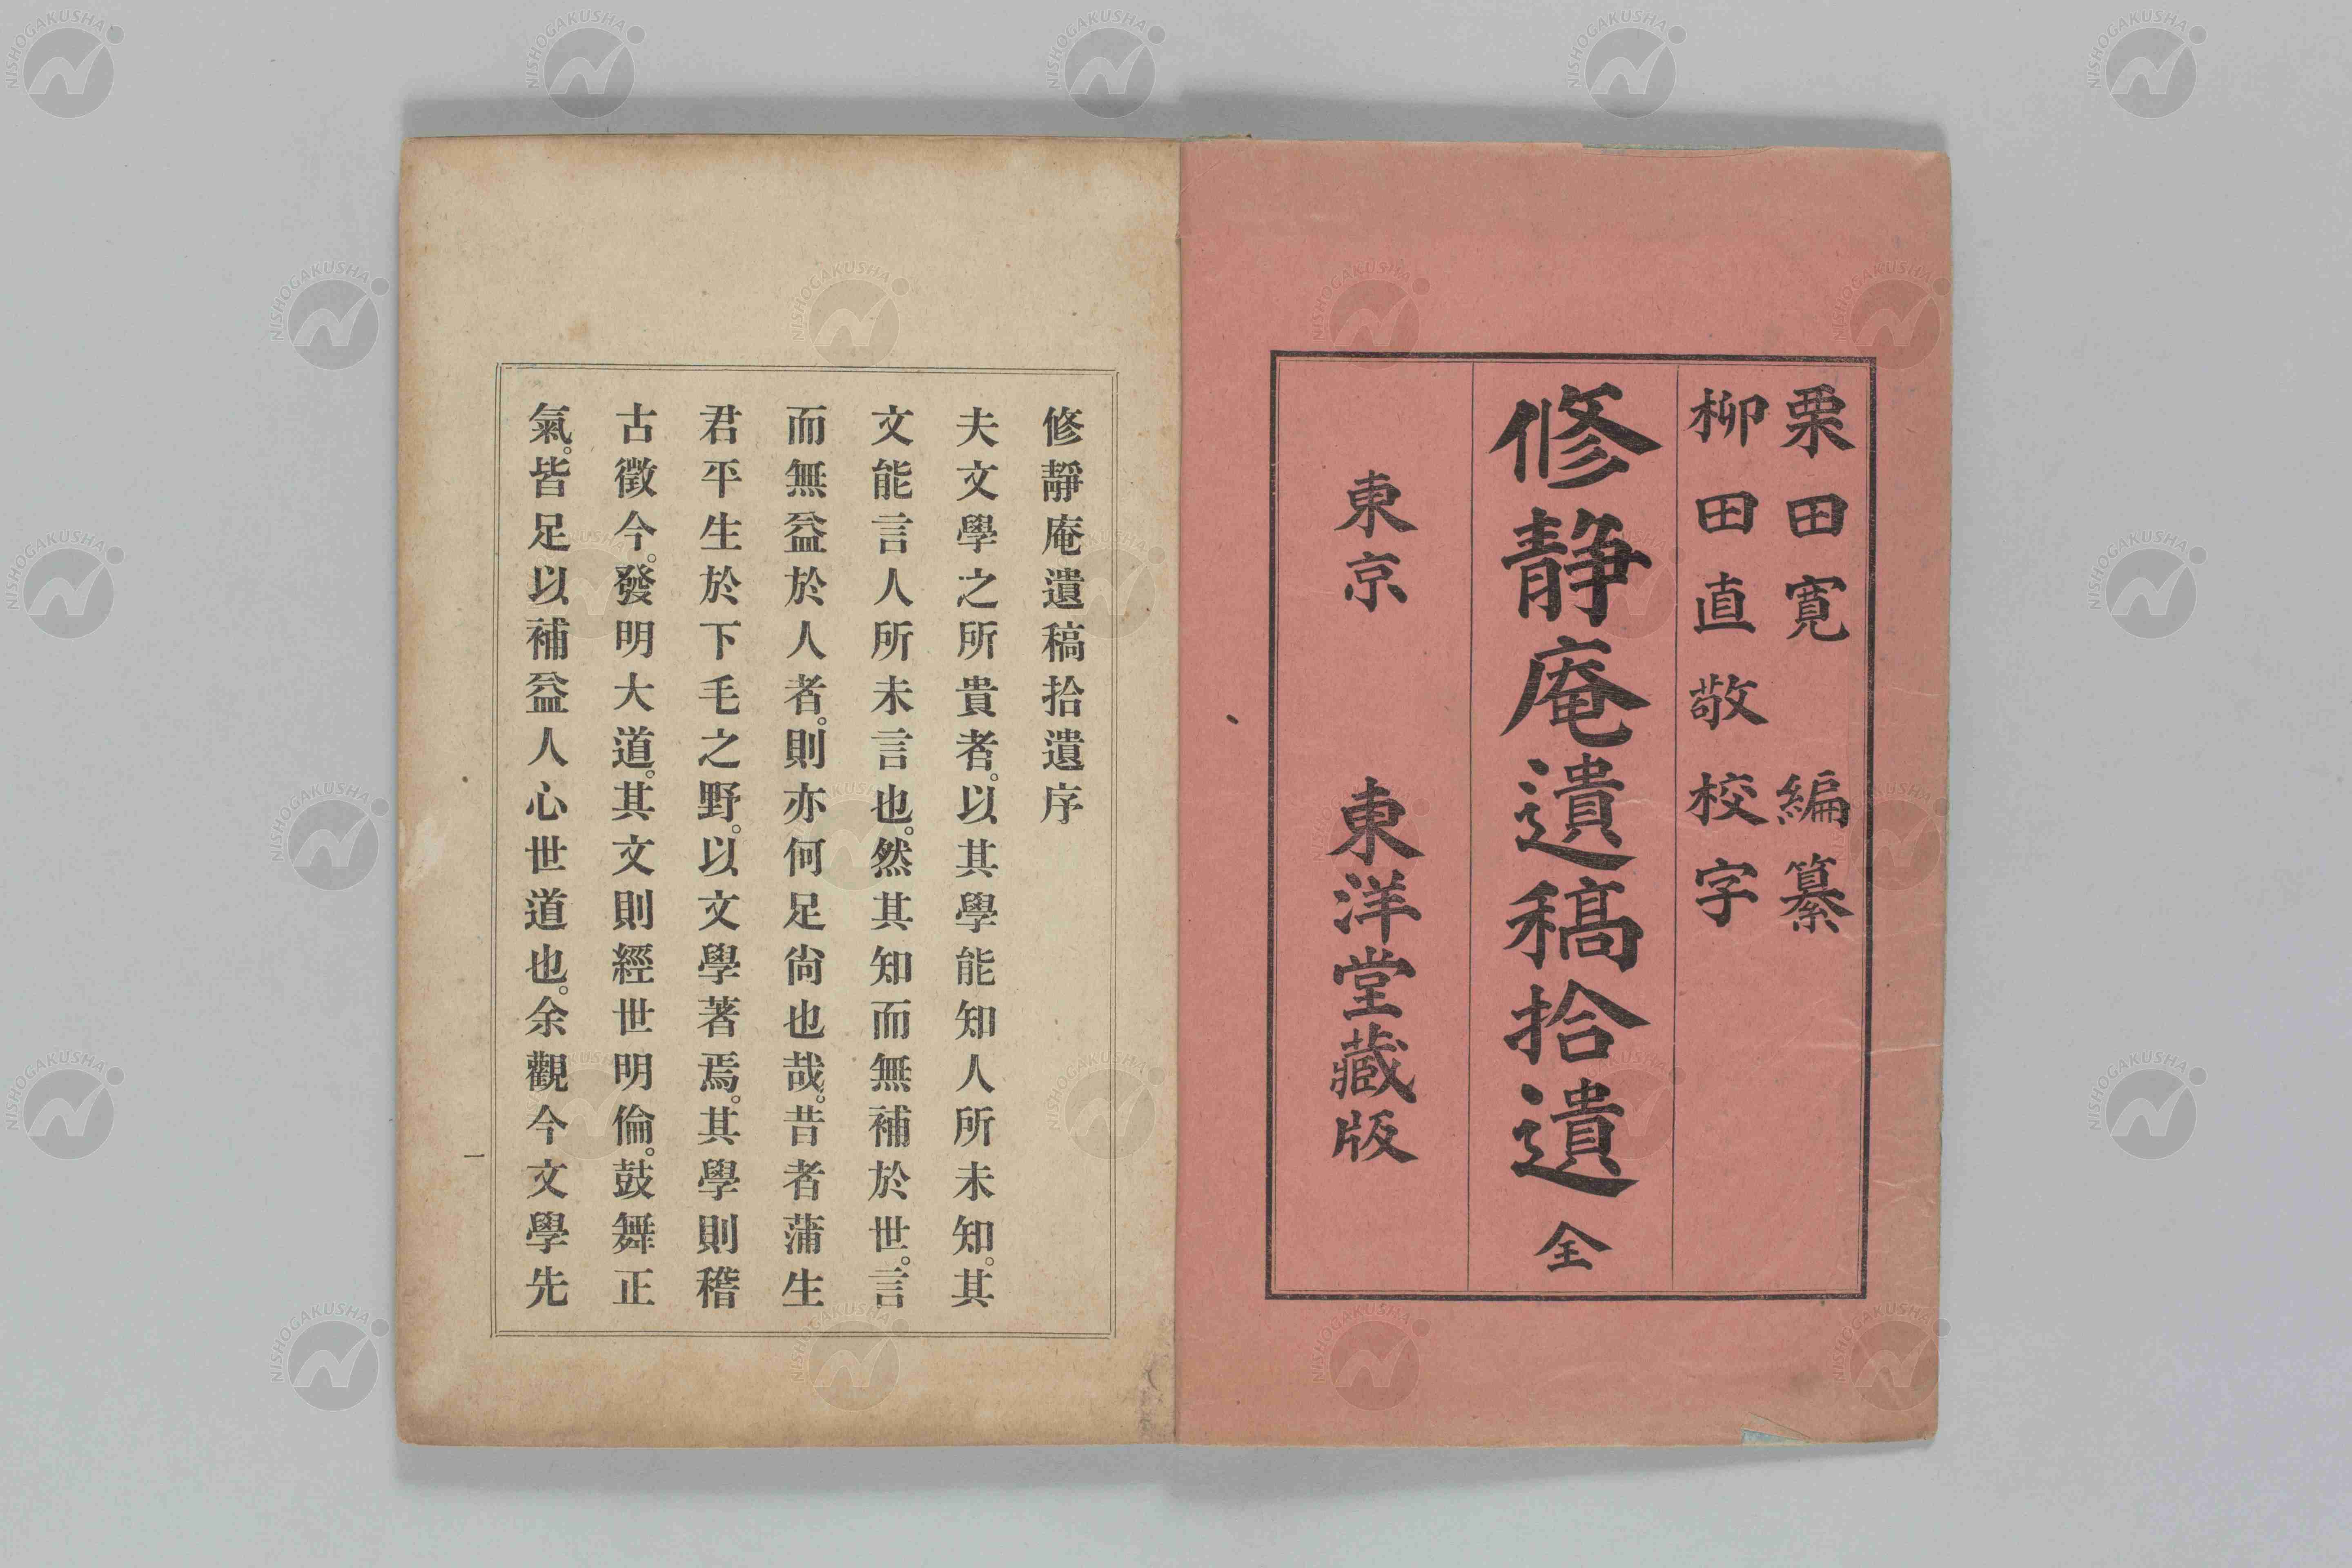 栗田寛 編纂
柳田直敬校字
修静庵遺稿拾遺 全
東京 東洋堂藏版
修靜庵遺稿拾遺序
夫文學之所貴者。以其學能知人所未知。其
文能言人所未言也。然其知而無補於世。言
而無益於人者。則亦何足尙也哉。昔者蒲生
君平生於下毛之野。以文學著焉。其學則稽
古徵今。發明大道。其文則經世明倫。鼓舞正
氣。皆足以補益人心世道也。余觀今文學先
一
NISHOGAKUSHA